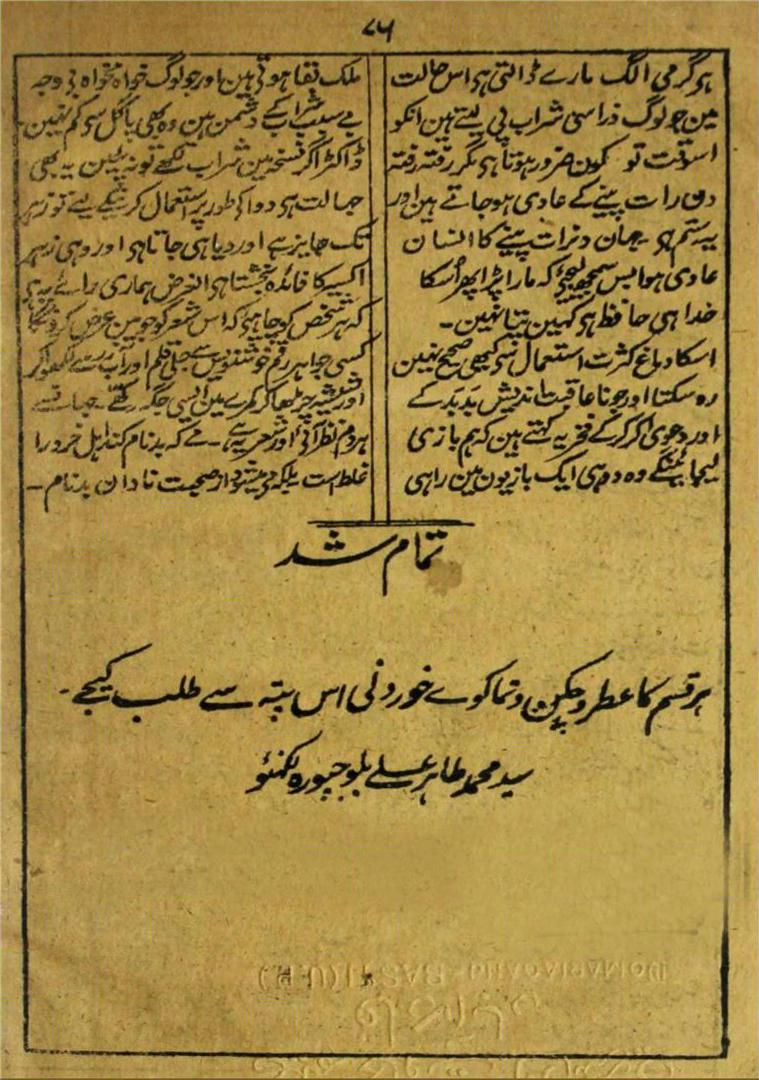 ۷۶
ہو گرمی الگ مارے ڈالتی ہو اس حالت
مین جو لوگ ذراسی شراب پی لیتے ہین انکو
اسوقت تو سکون ضرور ہوتا ہی مگر رفتہ رفتہ
دن رات پینے کے عادی ہو جاتے ہین اور
یہ ستم ہو جہان دنرات پینے کا انسان
عادی ہوا بس سمجھ لیجئے کہ مارا پڑا پھر اُسکا
خدا ہی حافظ ہو کہین پتا نہین۔
اسکا دماغ کثرت استعمال سے کبھی صحیح نہین
رہ سکتا اور جو ناعاقبت اندیش بَد بَد کے
اور دعوی کر کر کے فخریہ کہتے ہین کہ ہم بازی
لیجائینگے وہ دو ہی ایک بازیون مین راہی
ملک بقا ہوتے ہین اور جو لوگ خواہ مخواہ بی وجہ
بے سبب شراب کے دشمن ہین وہ بھی پاگل سے کم نہین۔
ڈاکٹر اگر نسخہ مین شراب لکھے تو نہ پئین یہ بھی
جہالت ہی دوا کی طور پر استعمال کرنیکے لیے تو زہر
تک جایز ہے اور دیا ہی جاتا ہو اور وہی زہر
اکسیر کا فائدہ بخشتا ہو الغرض ہماری رائے یہ ہو
کہ ہر شخص کو چاہیے کہ اس شعر کو جو مین عرض کرونگا
کسی جواہر رقم خوشنویس سے جلی قلم اور آب زر سے لکھوا کر
اور شیشہ چڑھا کر کمرے مین ایسی جگہ رکھے۔ جہان سے
ہر دم نظر آئے اور شعر یہ ہے۔ مے کہ بدنام کند اہل خرد را
غلط است بلکہ مے میشود از صحبت نادان بدنام۔
تمام شد
ہر قسم کا عطر و چکن و تماکوے خوردنی اس پتہ سے طلب کیجے۔
سید محمد طاہر علے بلوچپورہ لکھنؤ
DOMARIAGANJ BASTI (U.P.)